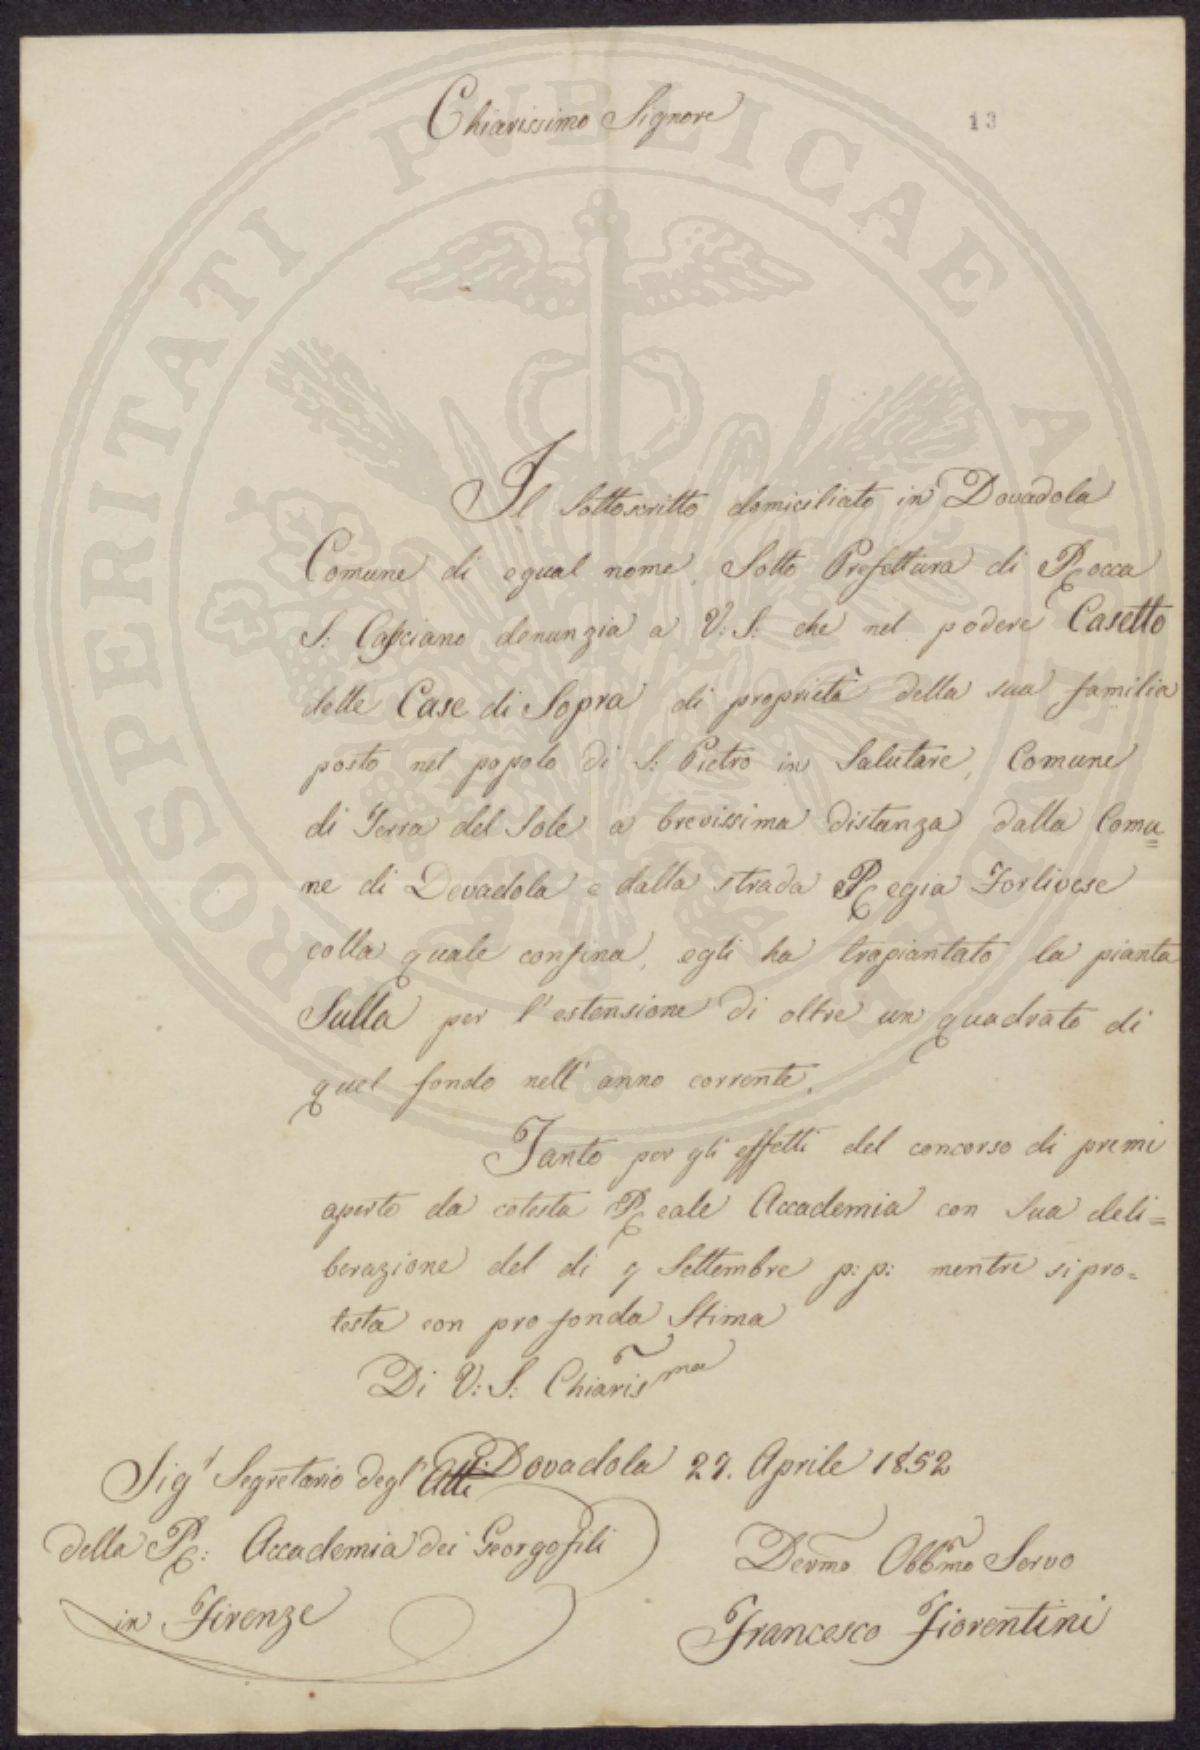 Chiarissimo Signore
13
Il Sottoscritto domiciliato in Dovadola
Comune di egual nome, Sotto Prefettura di Rocca
S: Casciano denunzia a V: S: che nel podere Casetto
delle Case di Sopra di proprietà della sua familia
posto nel popolo di S: Pietro in Salutare, Comune
di Terra del Sole a brevissima distanza dalla Comu=
ne di Dovadola e dalla strada Regia Forlivese
colla quale confina, egli ha trapiantato la pianta
Sulla per l'estensione di oltre un quadrato di
quel fondo nell'anno corrente.
Tanto per gli effetti del concorso di premi
aperto da cotesta Reale Accademia con sua deli=
berazione del di 9 Settembre p: p: mentre si pro=
testa con profonda Stima
Di V: S: Chiaris^ma
Dovadola 27. Aprile 1852
Sig^r Segretario degl'Atti
della R: Accademia dei Georgofili
in Firenze
Devmo Obbmo Servo
Francesco Fiorentini
PROSPERITATI PVBLICAE AVGENDAE